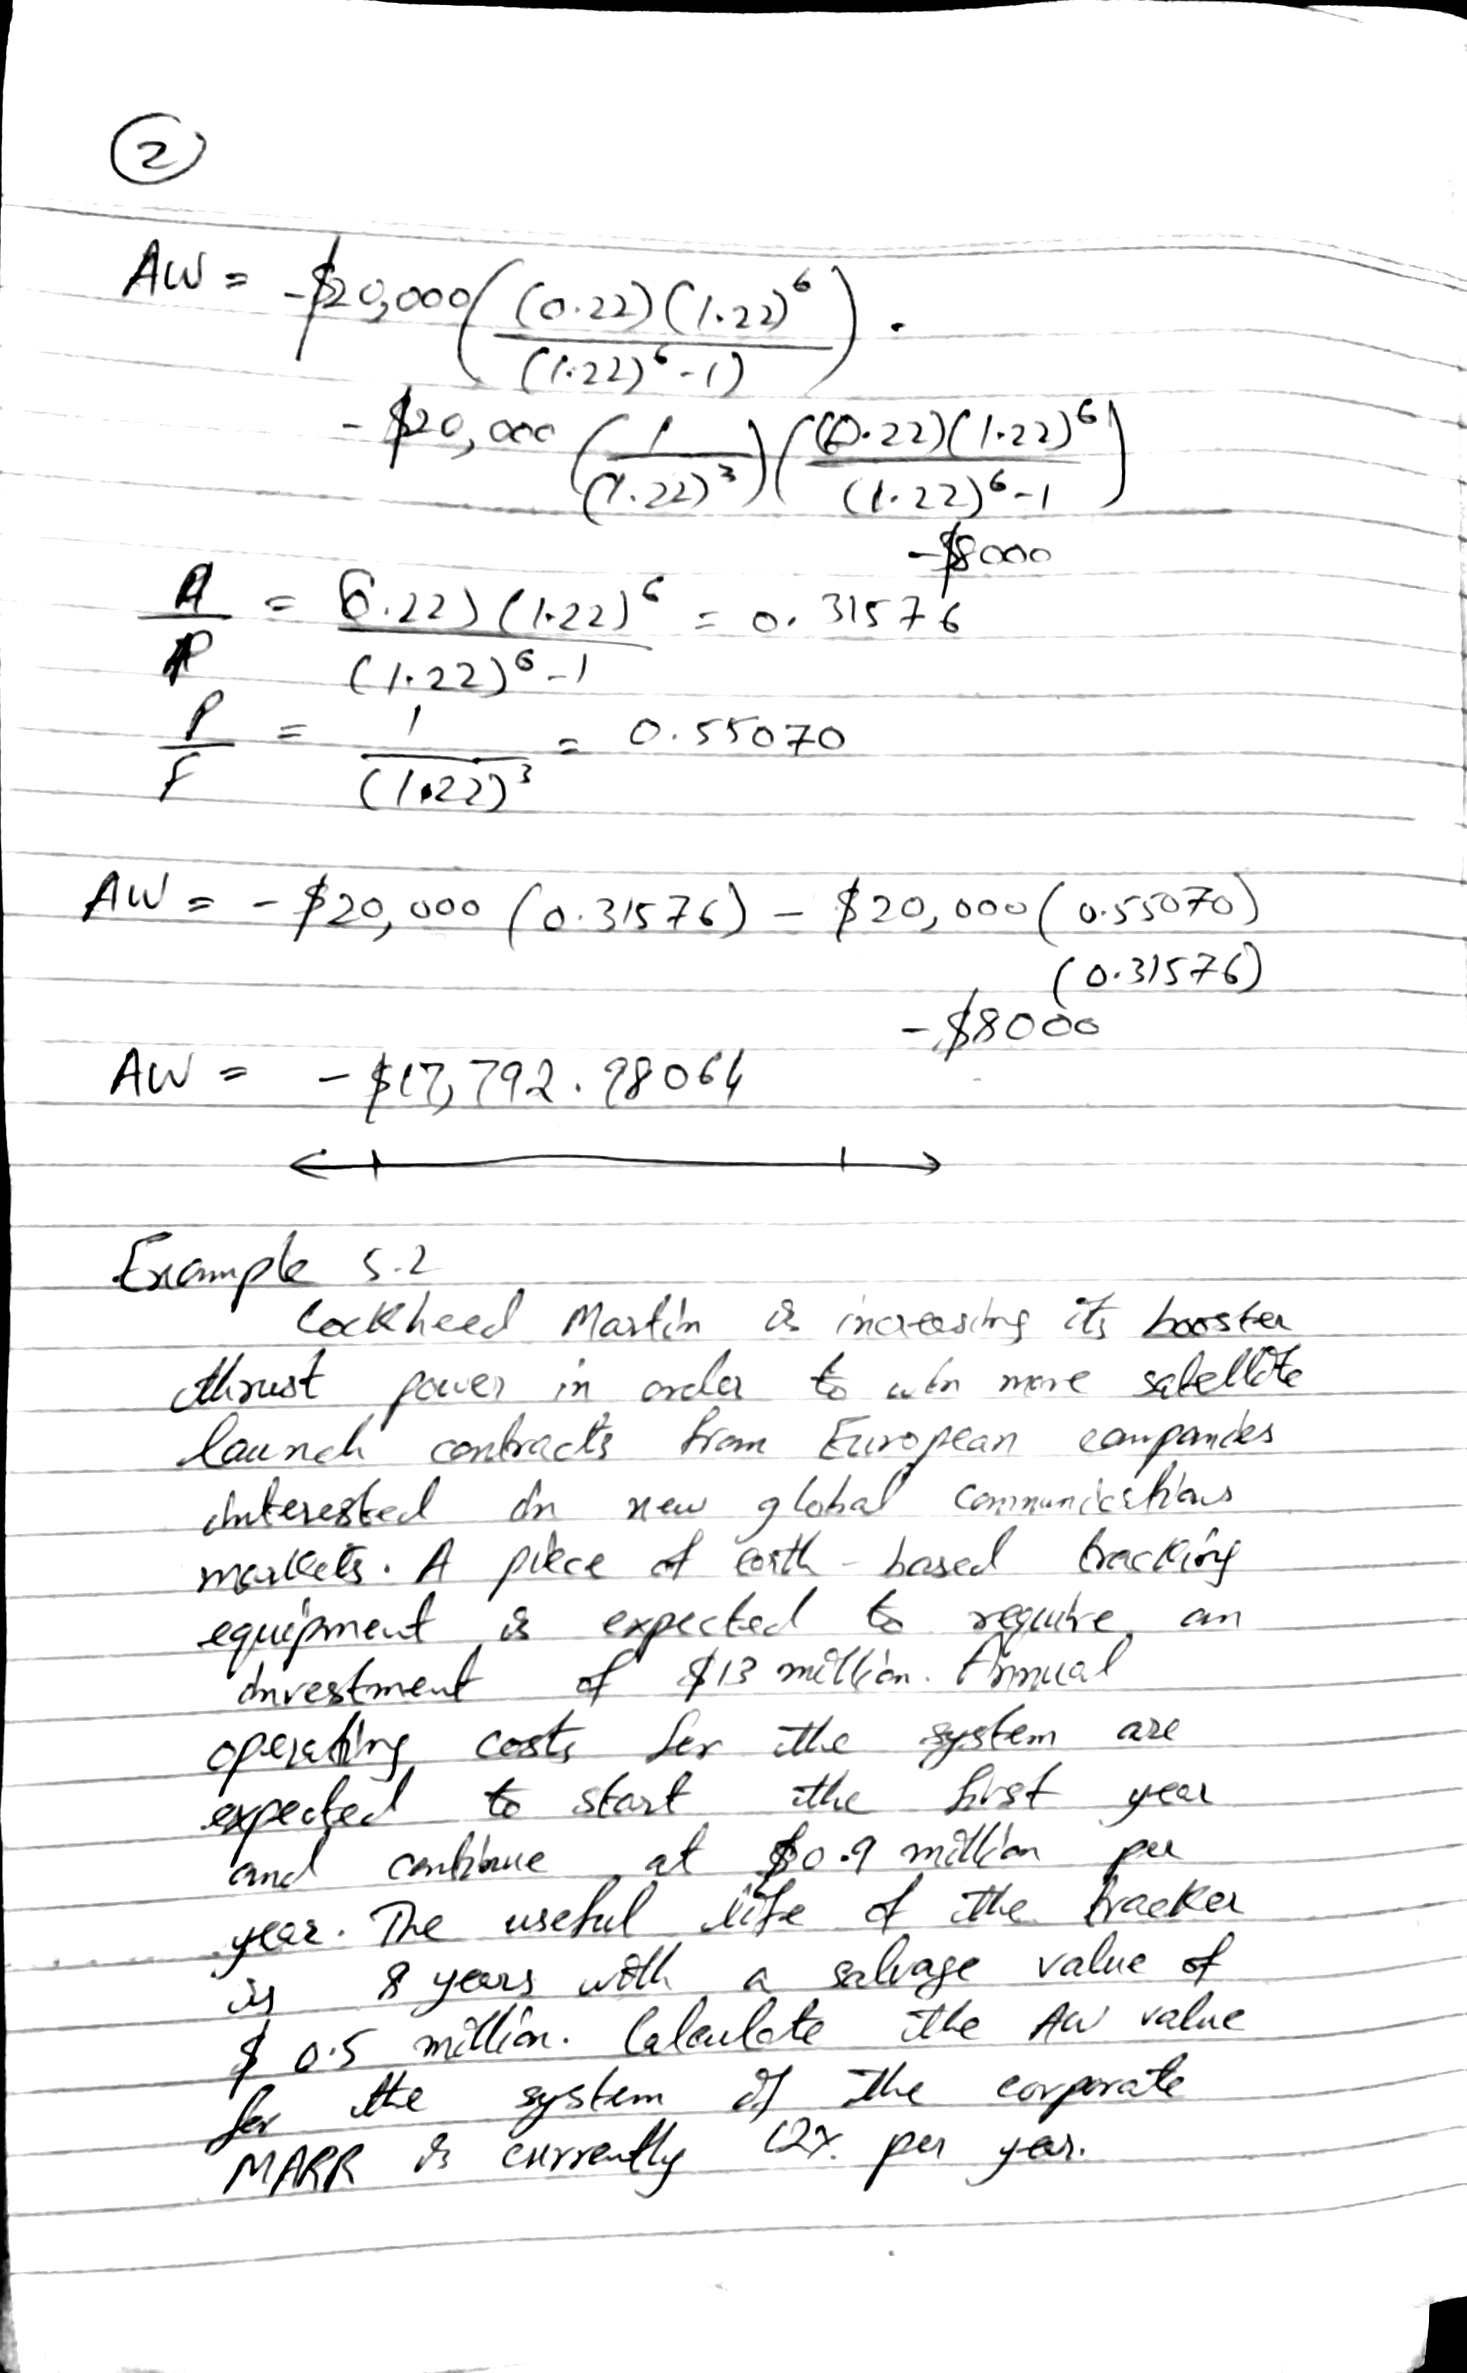 2
AW = -$20,000 ( (0.22)(1.22)^6 / (1.22)^6 - 1) ) .
- $20,000 ( 1 / (1.22)^3 ) ( (0.22)(1.22)^6 / (1.22)^6 - 1 )
- $8000
A / P = 0.22) (1.22)^6 / (1.22)^6 - 1 = 0.31576
P / F = 1 / (1.22)^3 = 0.55070
AW = - $20,000 (0.31576) - $20,000 (0.55070)
(0.31576)
- $8000
AW = - $17,792.98064
Example 5.2
Lockheed Martin is increasing its booster
thrust power in order to win more satellite
launch contracts from European companies
interested in new global communications
markets. A piece of earth-based tracking
equipment is expected to require an
investment of $13 million. Annual
operating costs for the system are
expected to start the first year
and continue at $0.9 million per
year. The useful life of the tracker
is 8 years with a salvage value of
$ 0.5 million. Calculate the AW value
for the system if the corporate
MARR is currently 12% per year.